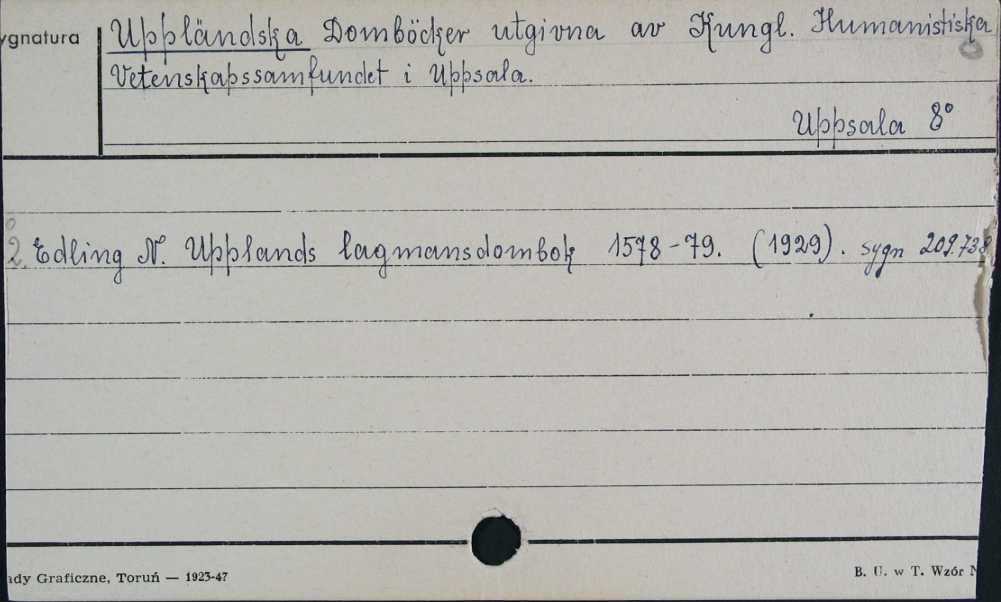 ygnatura
Uppländska Domböcker utgivna av Kungl. Humanistiska
Vetenskapssamfundet i Uppsala.
Uppsala 8°
2. Edling N. Upplands lagmansdombok 1578-79. (1929). sygn 209.738
ady Graficzne, Toruń — 1923-47
B. U. w T. Wzór N